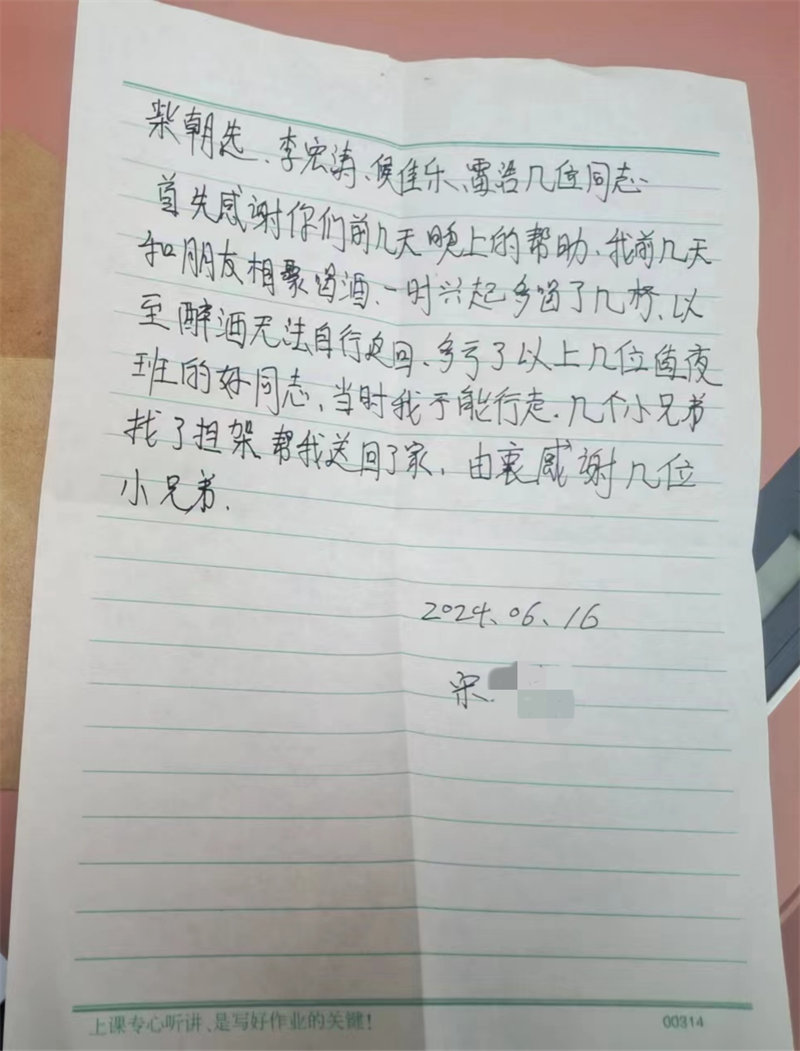 柴朝选、李宏涛、侯佳乐、雷浩几位同志
首先感谢你们前几天晚上的帮助、我前几天
和朋友相聚喝酒、一时兴起多喝了几杯、以
至醉酒无法自行返回、多亏了以上几位值夜
班的好同志、当时我不能行走.几个小兄弟
找了担架帮我送回了家.由衷感谢几位
小兄弟.
2024.06.16
宋.
上课专心听讲、是写好作业的关键!
00314